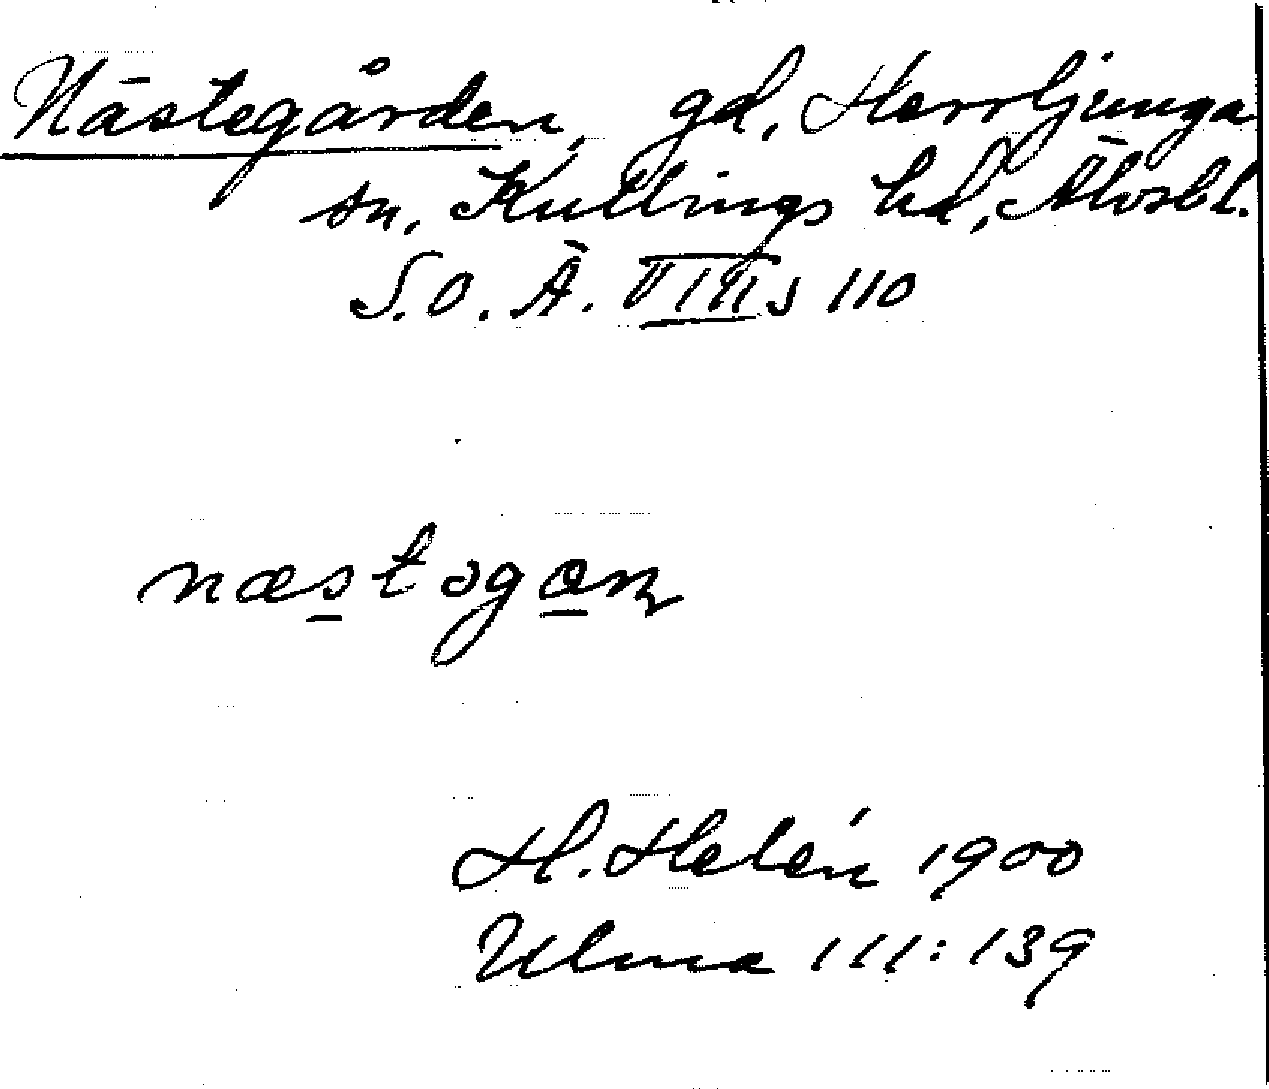 Nästegården, gd, Herrljunga
sn, Kullings hd, Älvsbl.
S.O.Ä. VIII s 110
næstogæn
H. Helén 1900
Ulma 111:139